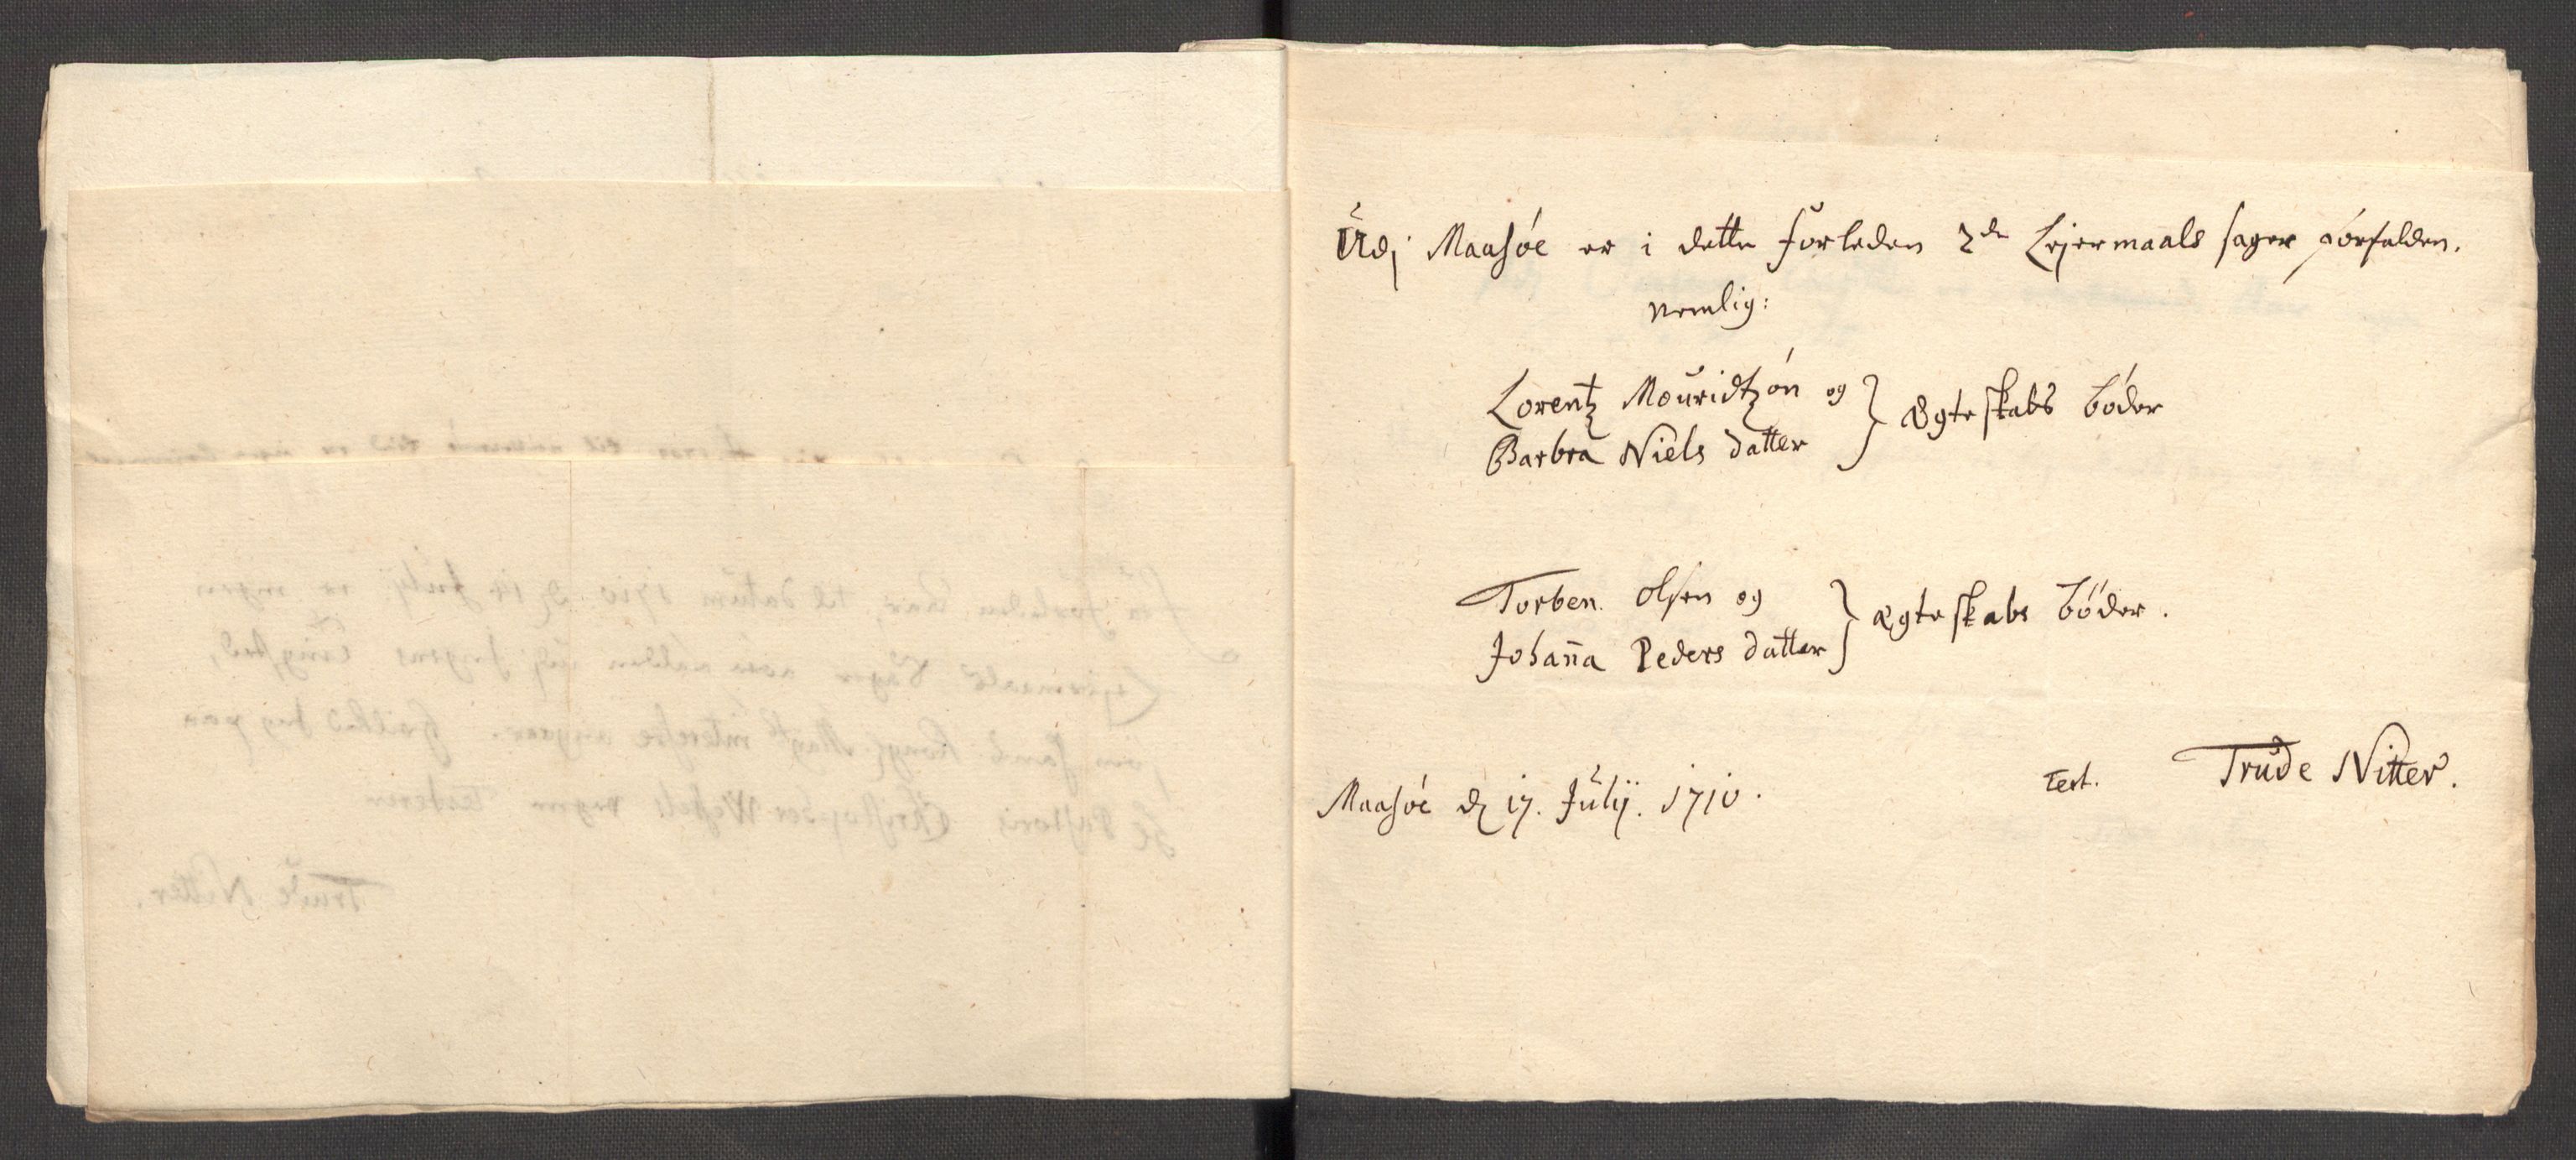 Udj Maasøe er i dette forleden 2de Lejermaals sager forfalden.
nemlig:
Lorentz Mouridtzøn og
Barbra Niels datter } Ægteskabs bøder
Torben Olsen og
Johanna Peders datter } Ægteskabs bøder.
Maasøe d 17. Julij. 1710.
Test. Trude Nitter.